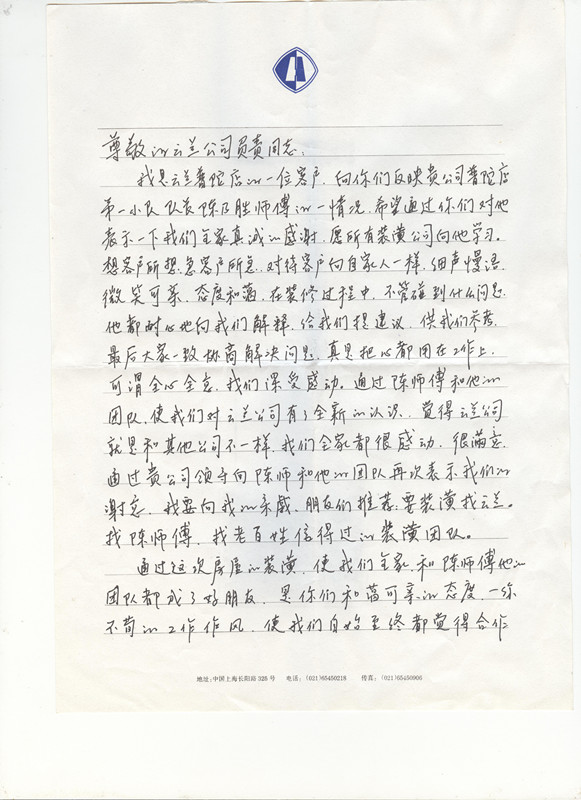 尊敬的云兰公司负责同志:
我是云兰普陀店的一位客户,向你们反映贵公司普陀店
第一小队队长陈乃胜师傅的一情况,希望通过你们对他
表示一下我们全家真诚的感谢,愿所有装潢公司向他学习。
想客户所想,急客户所急,对待客户向自家人一样,细声慢语,
微笑可亲,态度和蔼,在装修过程中,不管碰到什么问题,
他都耐心地向我们解释,给我们提建议,供我们参考,
最后大家一致协商解决问题,真是把心都用在工作上,
可谓全心全意,我们深受感动。通过陈师傅和他的
团队,使我们对云兰公司有了全新的认识,觉得云兰公司
就是和其他公司不一样,我们全家都很感动,很满意,
通过贵公司领导向陈师和他的团队再次表示我们的
谢意,我要向我的亲戚,朋友们推荐:要装潢找云兰。
找陈师傅,找老百姓信得过的装潢团队。
通过这次房屋的装潢,使我们全家和陈师傅他的
团队都成了好朋友,是你们和蔼可亲的态度,一丝
不苟的工作作风,使我们自始至终都觉得合作
地址:中国上海长阳路325号 电话:(021)65450218 传真:(021)65450906